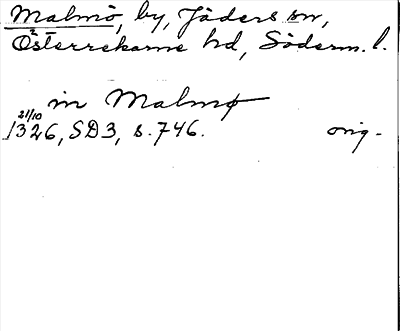 Malmö, by, Jäders sn,
Österrekarne hd, Söderm. l.
in Malmø
21/10
1326, SD3, s. 746. orig.